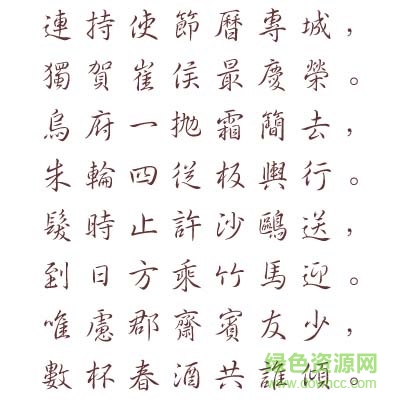 連持使節曆專城，
獨賀崔侯最慶榮。
烏府一拋霜簡去，
朱輪四從板輿行。
髮時止許沙鷗送，
到日方乘竹馬迎。
唯慮郡齋賓友少，
數杯春酒共誰傾。
绿色资源网
www.downcc.com